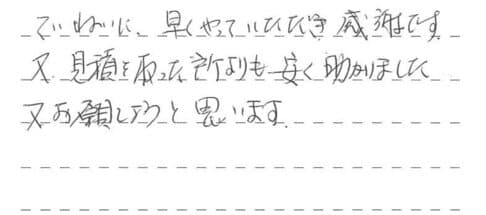 ていねいに、早くやっていただき感謝です。
又、見積を取った所よりも安く助かりました
又お願しようと思います。